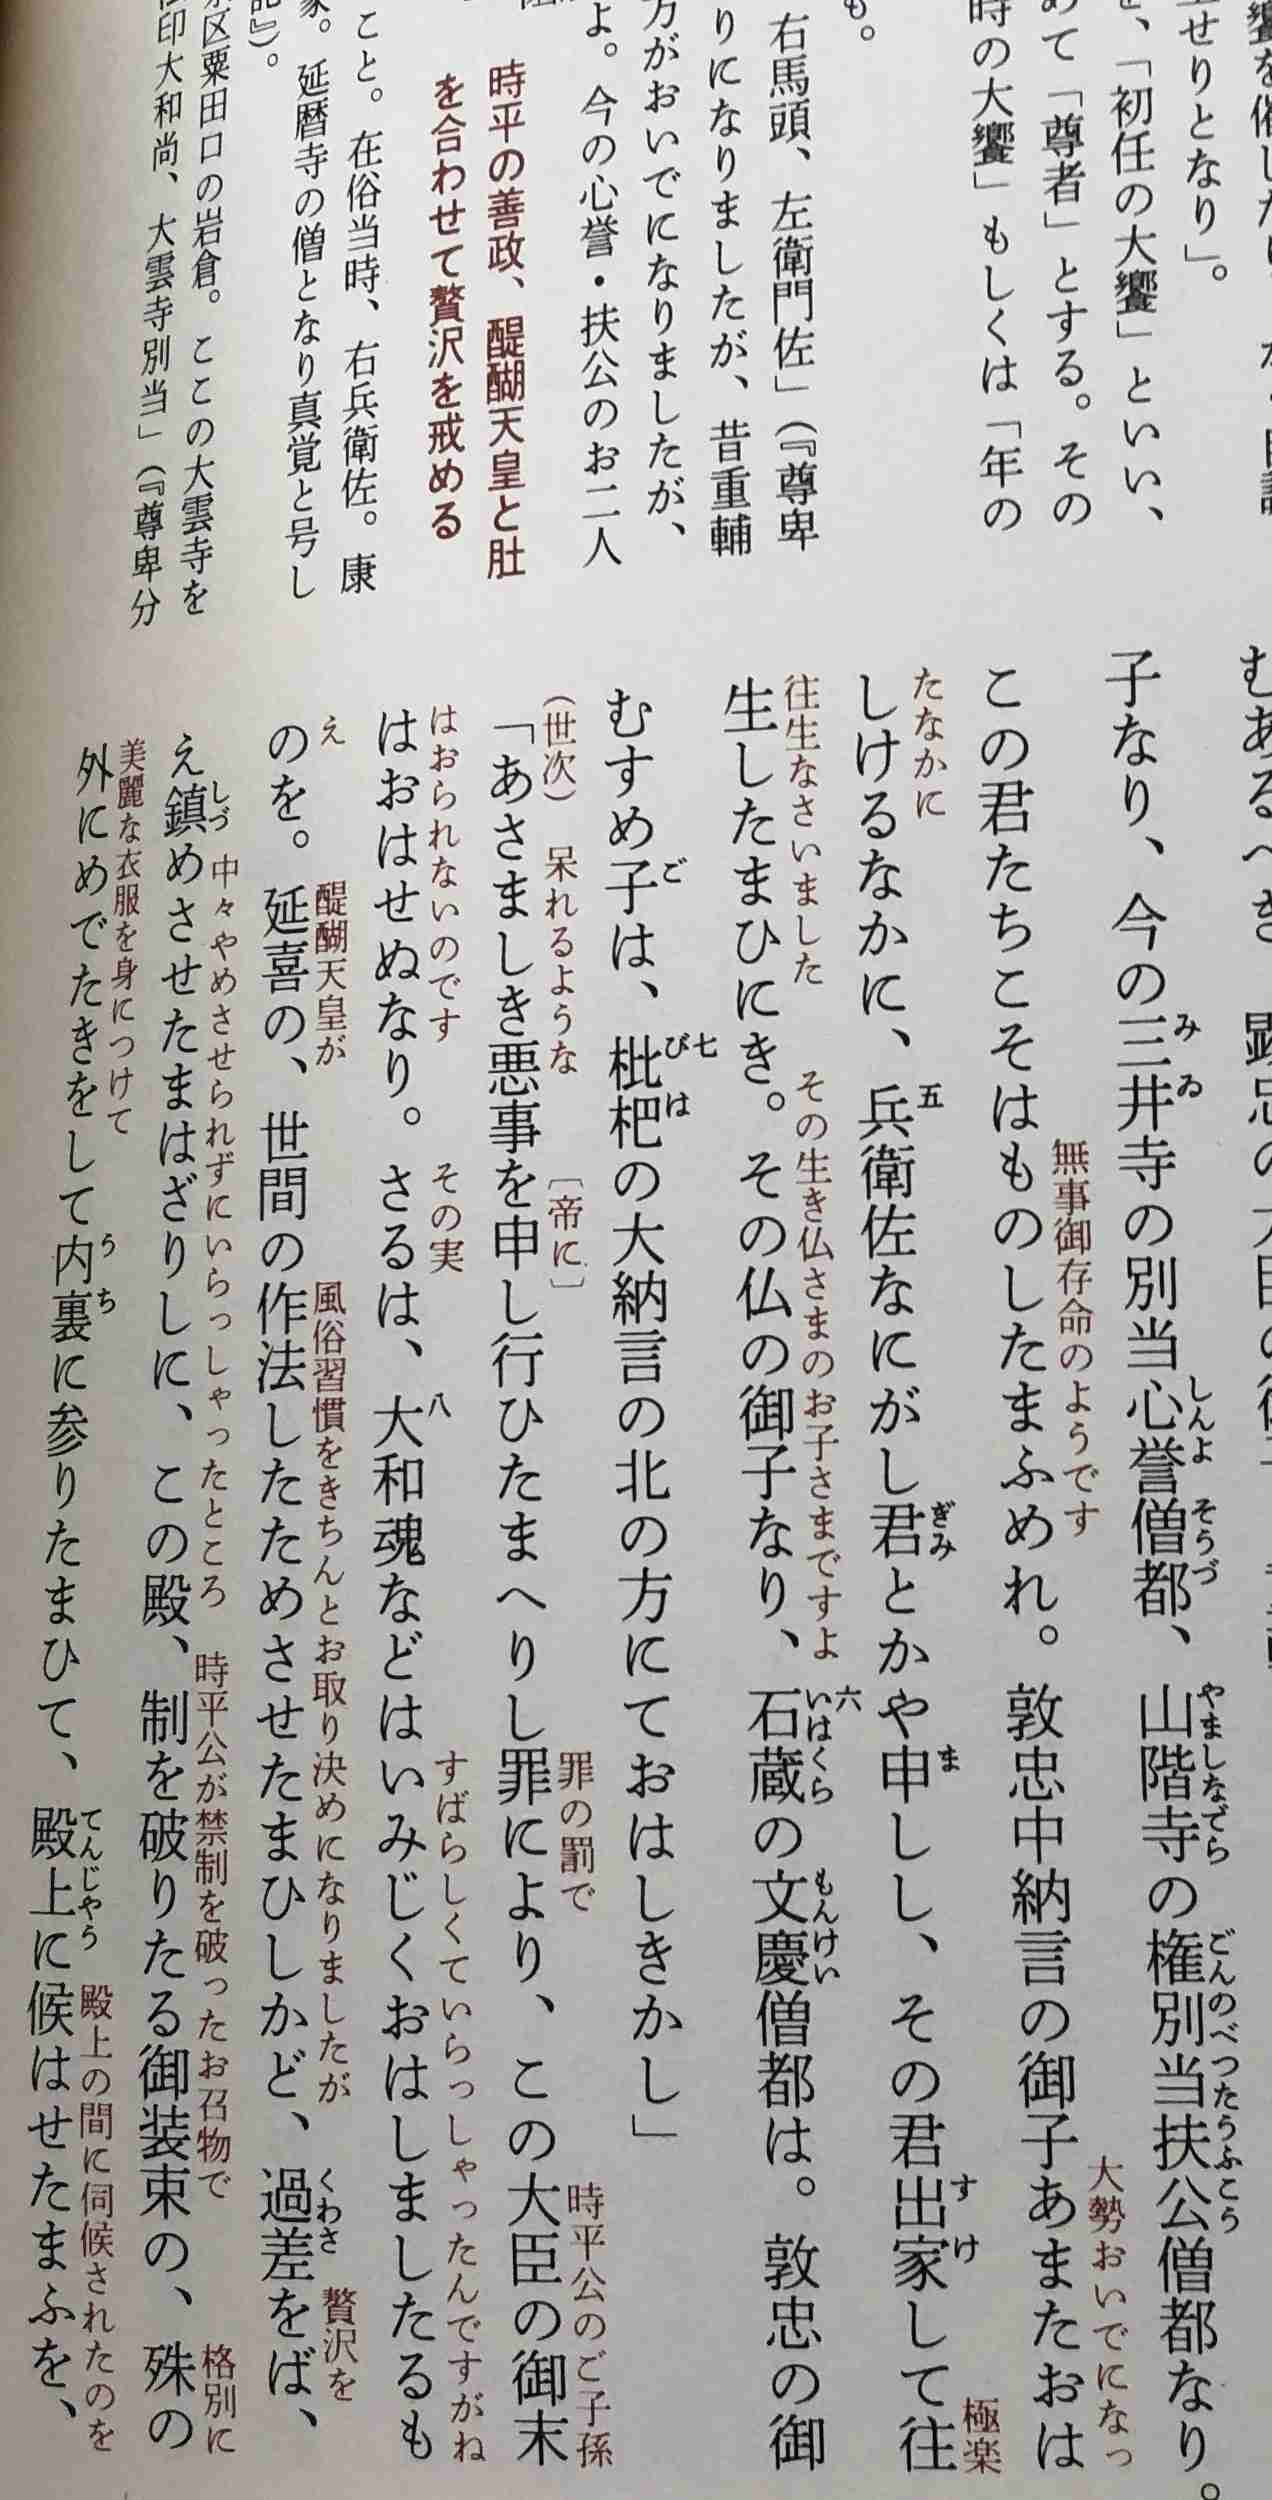 饗を催したり
せりとなり」。
、「初任の大饗」といい、
めて「尊者」とする。その
時の大饗」もしくは「年の
も。
右馬頭、左衛門佐」(『尊卑
りになりましたが、昔重輔
方がおいでになりましたが、
よ。今の心誉・扶公のお二人
時平の善政、醍醐天皇と肚
を合わせて贅沢を戒める
こと。在俗当時、右兵衛佐。康
家。延暦寺の僧となり真覚と号し
記』)。
京区粟田口の岩倉。ここの大雲寺を
印大和尚、大雲寺別当」(『尊卑分
むあるべき
子なり、今の三井寺の別当心誉僧都、山階寺の権別当扶公僧都なり。
み ゐ しんよ そうづ やましなでら ごんのべつたうふこう
この君たちこそはものしたまふめれ。敦忠中納言の御子あまたおは
無事御存命のようです 大勢おいでになっ
しけるなかに、兵衛佐なにがし君とかや申しし、その君出家して往
たなかに 五 ぎみ ま すけ 極楽
生したまひにき。その仏の御子なり、石蔵の文慶僧都は。敦忠の御
往生なさいました その生き仏さまのお子さまですよ 六 いはくら もんけい
むすめ子は、枇杷の大納言の北の方にておはしきかし」
ご 七 びは
「あさましき悪事を申し行ひたまへりし罪により、この大臣の御末
(世次) 呆れるような [帝に] 罪の罰で 時平公のご子孫
はおはせぬなり。さるは、大和魂などはいみじくおはしましたるも
はおられないのです その実 八 すばらしくていらっしゃったんですがね
のを。延喜の、世間の作法したためさせたまひしかど、過差をば、
え 醍醐天皇が 風俗習慣をきちんとお取り決めになりましたが くわさ 贅沢を
え鎮めさせたまはざりしに、この殿、制を破りたる御装束の、殊の
しづ 中々やめさせられずにいらっしゃったところ 時平公が禁制を破ったお召物で 格別に
外にめでたきをして内裏に参りたまひて、殿上に候はせたまふを、
美麗な衣服を身につけて うち てんじやう 殿上の間に伺候されたのを